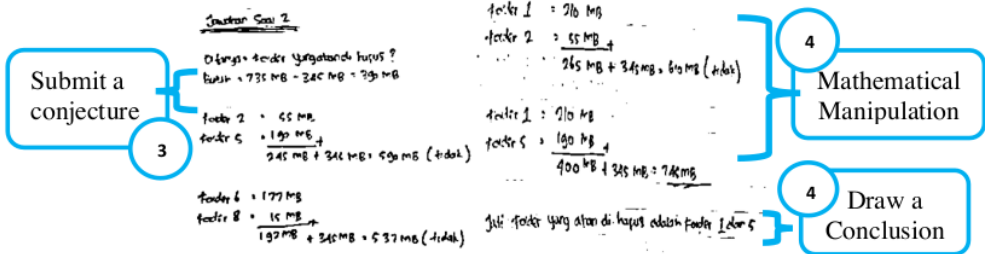 Jawaban Soal 2
Submit a
conjecture
3
Butuh = 735 MB - 345 MB = 390 MB
folder 2 = 55 MB
folder 5 = 190 MB +
245 MB + 345 MB = 590 MB (tidak)
folder 6 = 177 MB
folder 8 = 15 MB +
192 MB + 345 MB = 537 MB (tidak)
folder 1 = 210 MB
folder 2 = 55 MB +
265 MB + 345 MB = 610 MB (tidak)
folder 1 = 210 MB
folder 5 = 190 MB +
400 MB + 345 MB = 745 MB
Jadi folder yang akan di hapus adalah Folder 1 dan 5
4
Mathematical
Manipulation
4
Draw a
Conclusion